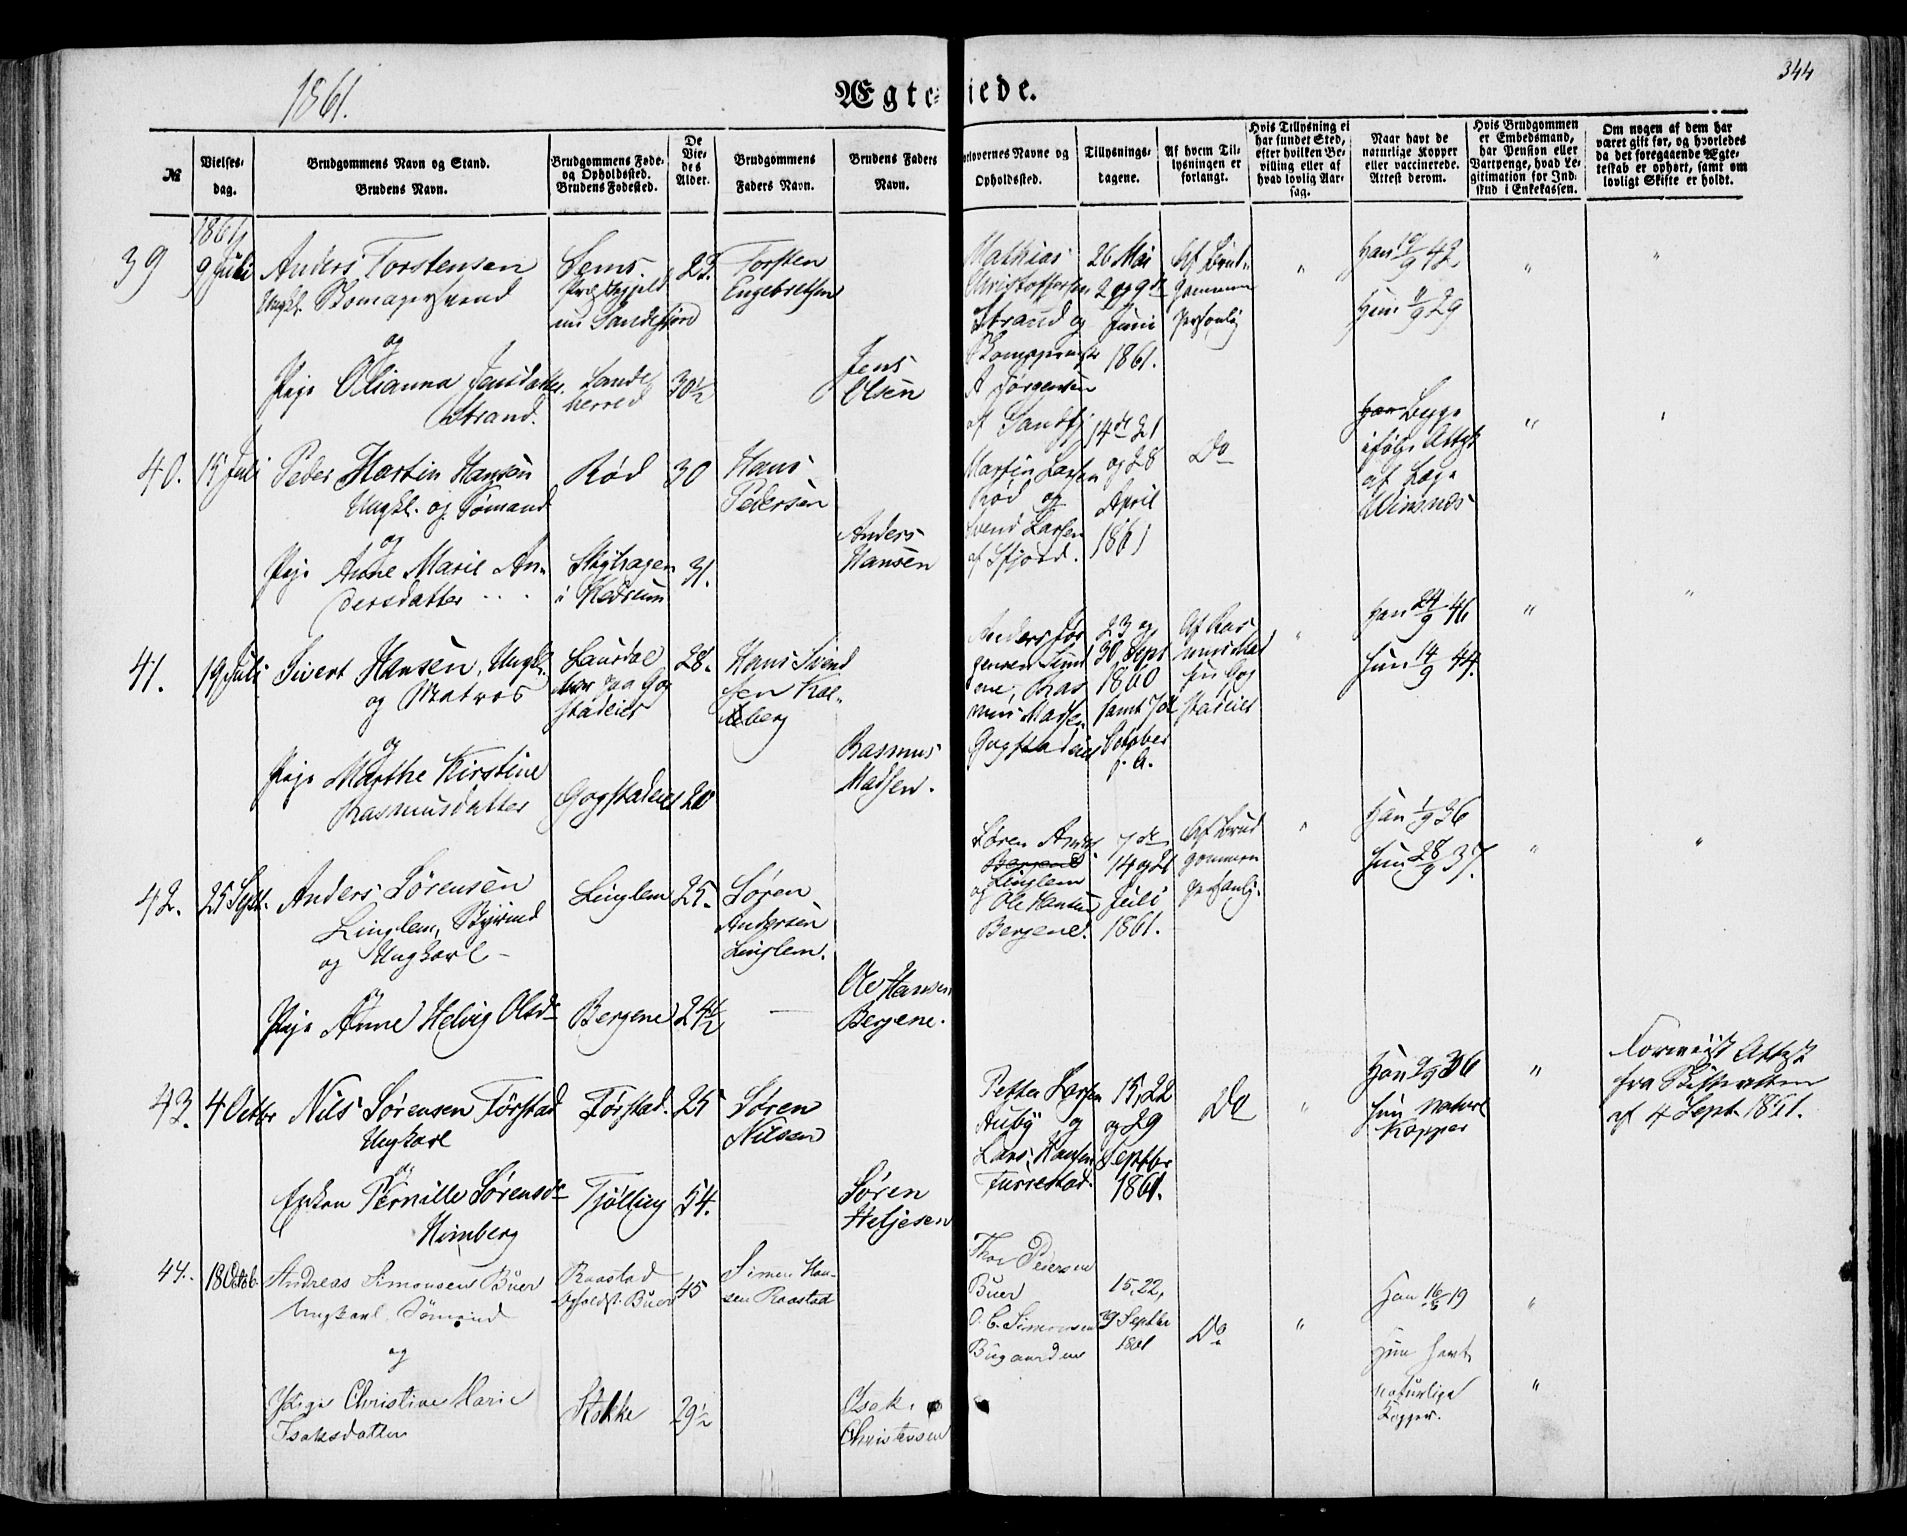 1861.
Ægte-
viede.
344
№
Vielses-
dag.
Brudgommens Navn og Stand.
Brudens Navn.
Brudgommens Føde-
og Opholdssted.
Brudens Fødested.
De
Vie-
des
Alder.
Brudgommens
Faders Navn.
Brudens Faders
Navn.
orlovernes Navne og
Opholdssted.
Tillysnings-
dagene.
Af hvem Til-
lysningen er
forlangt.
Hvis Tillysning ei
har fundet Sted,
efter hvilken Be-
villing eller af
hvad lovlig Aar-
sag.
Naar havt de
naturlige Kopper
eller vaccinerede.
Attest derom.
Hvis Brudgommen
er Embedsmand,
har Pension eller
Vartpenge, hvad Le-
gitimation for Ind-
skud i Enkekassen.
Om nogen af dem har
været gift før, og hvorledes
da det foregaaende Ægte-
teskab er ophørt, samt om
lovligt Skifte er holdt.
1861
39
9 Juli
Anders Torstensen
Ungk.
og
Pige Olianna Jensdatter
Strand.
Sems
Præstegjeld
nu Sandefjord
Sande
herred
23
30½
Torsten
Engebretsen
Jens
Olsen
Mathias
Christoffersen
Strand og
A Jørgensen
af Sandfj
26 Mai
2 og 9de
Juni
1861.
Af Brud-
gommen
personlig
"
Han 19/9 42
Hun 9/9 29
"
"
40.
15 Juli
Peder Martin Hansen
Ungk. og Sømand
og
Pige Anne Marie An-
dersdatter
Rød
i Hedrum
30
31.
Hans
Pedersen
Anders
Hansen
Martin Larsen
Rød og
Svend Larsen
af Sfjord.
14de 21
og 28
April
1861
Do
Begge
ifølge Attest
af Læge
Wirsnæs
"
"
41.
19 Juli
Sivert Hansen, Ungk.
og Matros
og
Pige Marthe Kirstine
Rasmusdatter
Gogstadeiet
28.
20
Hans
Rasmus
Madsen.
Anders Jør
gensen
ene, Ras
mus Madsen
Gogstadeiet
23 og
30 Sept
1860
samt 7de
October
s. A.
Af Ras
mus Mad
sen Gog
stadeiet
"
Han 24/9 46
Hun 14/9 44.
"
"
42.
25 Sept.
Anders Sørensen
Linglem,
og Ungkarl
og
Pige Anne Helvig Olsd
Linglem
Bergene
25.
24½
Søren
Andersen
Linglem.
Ole Hansen
Bergene.
Søren Anders
Bergene
Linglem
og Ole Hansen
Bergene.
7de
14 og 21
Juli
1861.
Af Brud
gommen
personlig.
"
Han 1/9 36
Hun 28/9 37.
"
"
43.
4 Octbr
Nils Sørensen Førstad
Ungkarl
og
Enken Pernille Sørensd
Himberg
Førstad.
Tjølling
25
54.
Søren
Nilsen
Søren
Heljesen
Petter Larsen
Auby og
Lars Hansen
Furrestad.
15, 22
og 29
Septbr
1861.
Do
"
Han 9/9 36
Hun naturl
Kopper
"
Foreviist Attest
fra Skifteretten
af 4 Sept. 1861.
44.
18 Octob.
Andreas Simonsen Buer
Ungkarl, Sømand
og
Pige Christine Marie
Isaksdatter
Raastad
Opholdst. Buer
Stokke
45
29½
Simen Han-
sen Raastad
Isak
Christensen
Thor Pedersen
Buer
O. C. Simonsen
Bugaarden
15, 22,
29 Septbr
1861
Do
"
Han 16/8 19
Hun havt
naturlige
Kopper.
"
"